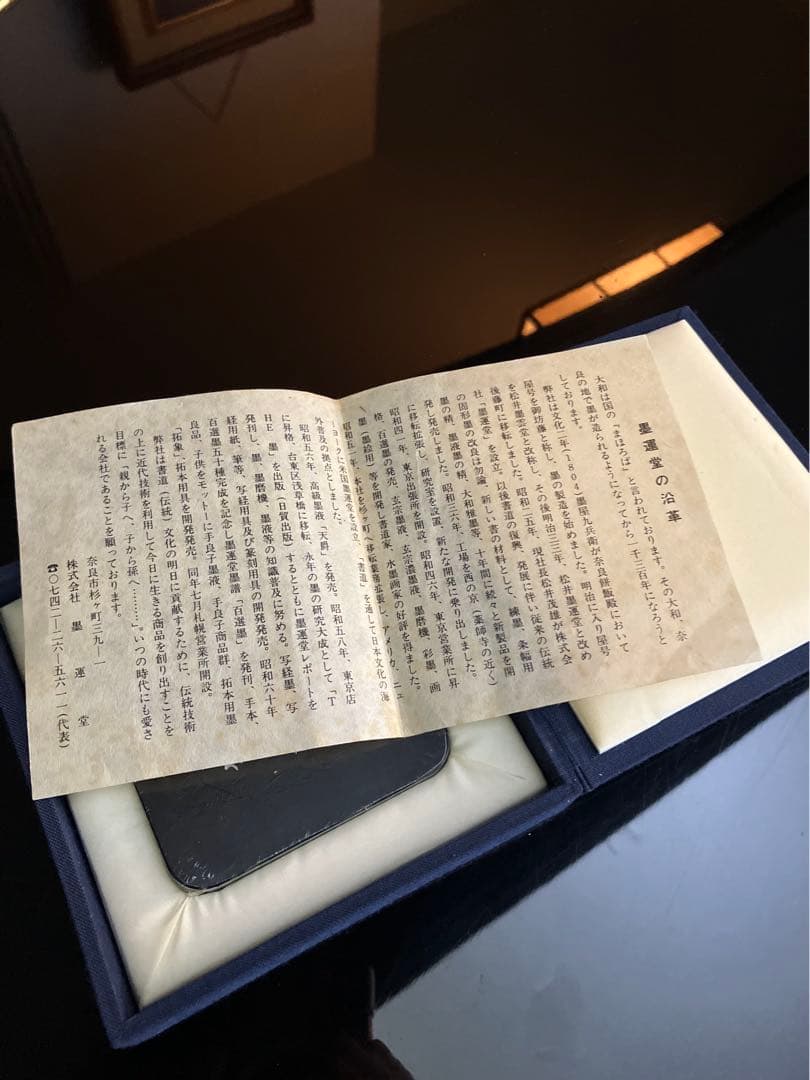 墨運堂の沿革
大和は国の「まほろば」と言われております。その大和、奈
良の地で墨が造られるようになってから一千三百年になろうと
しております。
弊社は文化二年(1804)墨屋九兵衛が奈良餅飯殿において
屋号を御坊藤と称し、墨の製造を始めました。明治に入り屋号
を松井墨雲堂と改称し、その後明治三三年、松井墨運堂と改め
後藤町に移転しました。昭和二五年、現社長松井茂雄が株式会
社「墨運堂」を設立。以後書道の復興、発展に伴い従来の伝統
の固形墨の改良は勿論、新しい書の材料として、練墨
墨の精、墨液墨の精、大和雅墨等、十年間に続々と新製品を開
発し発売しました。昭和三六年、工場を西の京(薬師寺の近く)
に移転拡張し、研究室を設置、新たな開発に乗り出しました。
昭和四一年、東京出張所を開設。昭和四六年、東京営業所に昇
格、百選墨の発売、玄宗墨液、玄宗濃墨液、墨磨機、彩墨、画
墨(墨絵用)等を開発し書道家、水墨画家の好評を得ました。
昭和五一年、本社を杉ヶ町へ移転業務拡張し、アメリカ、ニュ
ーヨークに米国墨運堂を設立、「書道」を通して日本文化の海
外普及の拠点としました。
昭和五六年、高級墨液「天爵」を発売。昭和五八年、東京店
に昇格、台東区浅草橋に移転、永年の墨の研究大成として「T
HE 墨」を出版(日貿出版)するとともに墨運堂レポートを
発刊し、墨、墨磨機、墨液等の知識普及に努める。写経墨、写
経用紙、筆等、写経用具及び篆刻用具の開発発売。昭和六十年
百選墨五十種完成を記念し墨運堂墨譜「百選墨」を発刊、手本、
良品、子供をモットーに手良子墨液、手良子商品群、拓本用墨
「拓象」拓本用具を開発発売。同年七月札幌営業所開設。
弊社は書道(伝統)文化の明日に貢献するために、伝統技術
の上に近代技術を利用して今日に生きる商品を創り出すことを
目標に「親から子へ、子から孫へ………」。いつの時代にも愛さ
れる会社であることを願っております。
奈良市杉ヶ町三九—一
株式会社 墨運堂
☎〇七四二—二六—五六一一(代表)